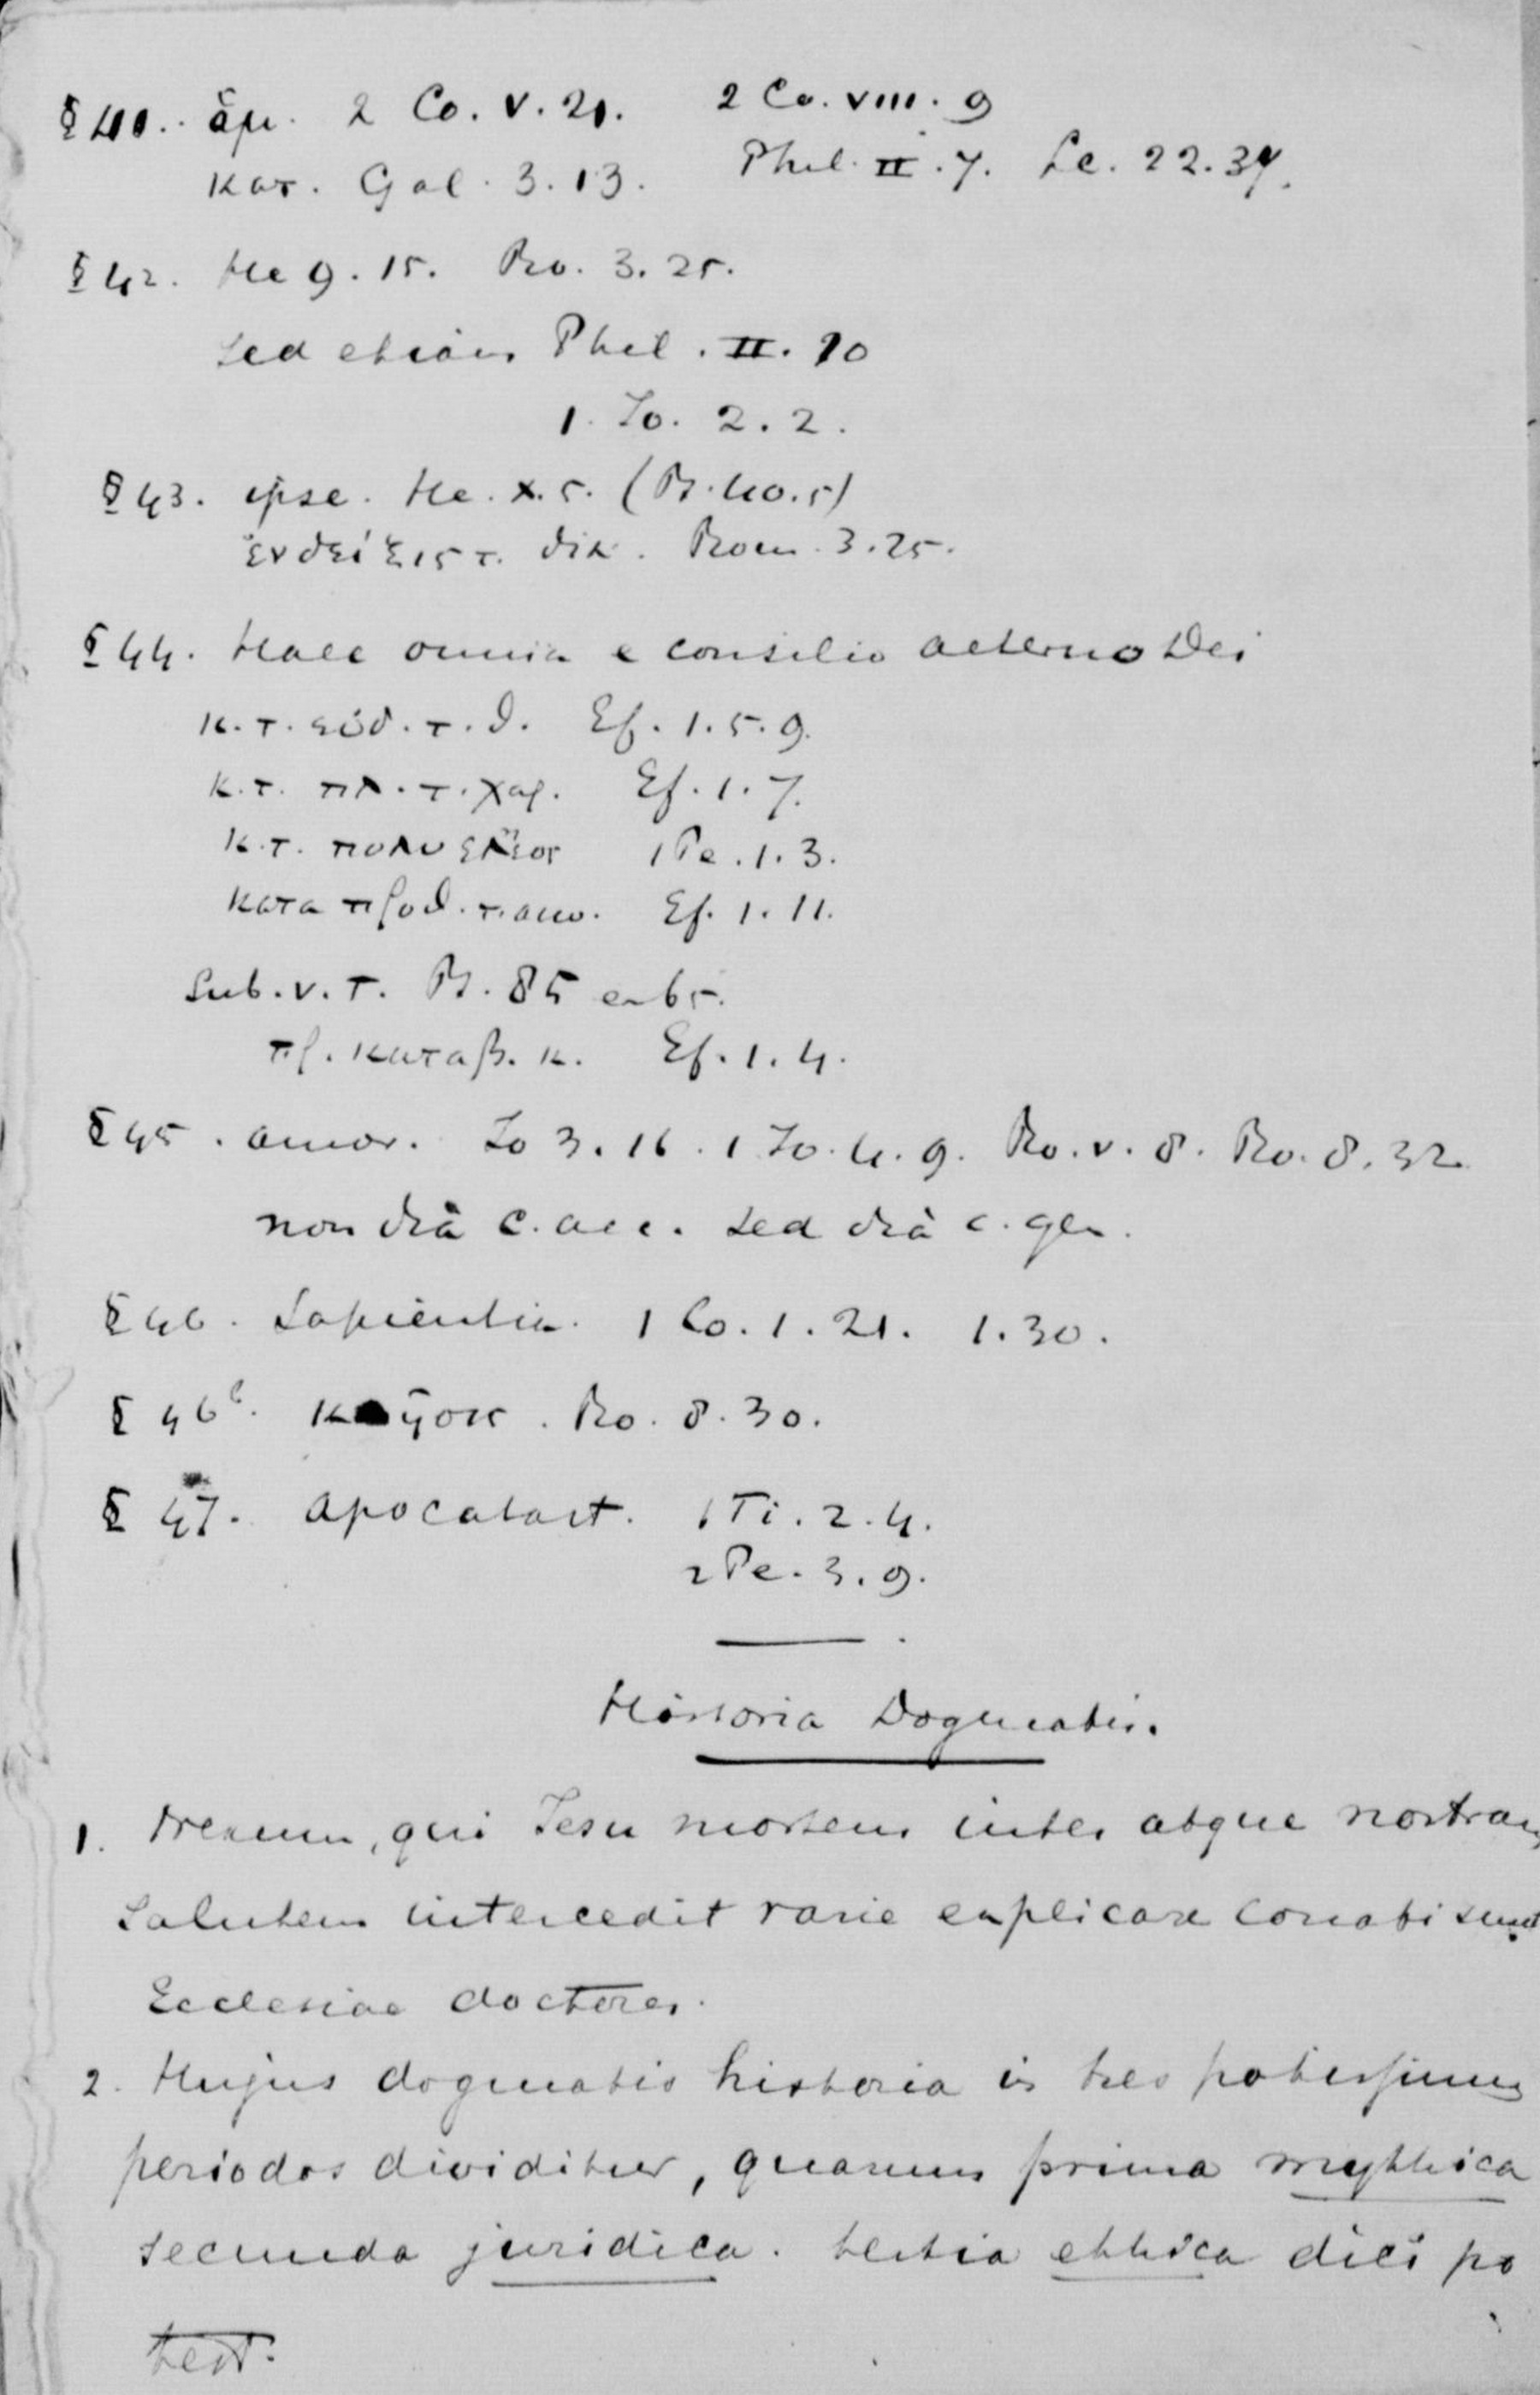 § 41. ἁμ. 2 Co. V. 21. 2 Co. VIII. 9
κατ. Gal. 3.13. Phil. II. 7. Lc. 22.37.
§ 42. He 9.15. Ro. 3.25.
Sed etiam Phil. II. 10
1. Jo. 2.2.
§ 43. ipse. He. X. 5. (Ps. 40.5)
ἔνδειξις τ. δικ. Rom. 3.25.
§ 44. Haec omnia e consilio aeterno Dei
κ. τ. εὐδ. τ. θ. Ef. 1.5.9.
κ. τ. πλ. τ. χαρ. Ef. 1.7.
κ. τ. πολυ ἔλεος 1 Pe. 1.3.
κατα προθ. τ. Ef. 1.11.
Sub. V. T. Ps. 85 en 65.
πρ. καταβ. κ. Ef. 1.4.
§ 45. amor. Jo 3.16. 1 Jo. 4.9. Ro. V. 8. Ro. 8.32
non διὰ c. acc. sed διὰ c. gen.
§ 46. Sapientia. 1 Co. 1.21. 1.30.
§ 46b. Ro. 8.30.
§ 47. Apocatast. 1 Ti. 2.4.
2 Pe. 3.9.
Historia Dogmatis.
1. Nexum, qui Jesu mortem inter atque nostram
Salutem intercedit varie explicare conati sunt
Ecclesiae doctores.
2. Hujus dogmatis historia in tres potissimum
periodos dividitur, quarum prima mythica
secunda juridica. tertia ethica dici po
test.